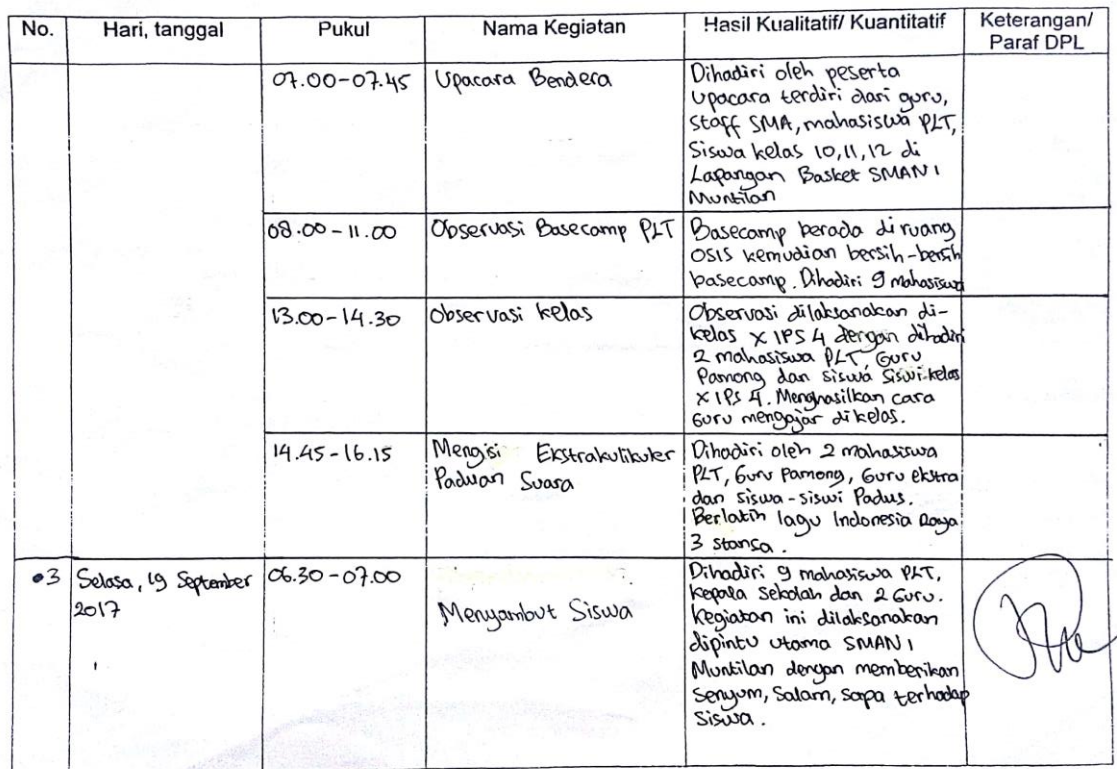 No. Hari, tanggal Pukul Nama Kegiatan Hasil Kualitatif/ Kuantitatif Keterangan/
Paraf DPL
07.00-07.45 Upacara Bendera Dihadiri oleh peserta
upacara terdiri dari guru,
staff SMA, mahasiswa PLT,
Siswa kelas 10, 11, 12 di
Lapangan Basket SMAN 1
Muntilan
08.00 - 11.00 Observasi Basecamp PLT Basecamp berada diruang
OSIS kemudian bersih-bersih
basecamp. Dihadiri 9 mahasiswa
13.00-14.30 Observasi kelas Observasi dilaksanakan di-
kelas X IPS 4 dengan dihadiri
2 mahasiswa PLT, Guru
Pamong dan siswa siswi kelas
X IPS 4. Menghasilkan cara
Guru mengajar di kelas.
14.45-16.15 Mengisi Ekstrakulikuler Dihadiri oleh 2 mahasiswa
Paduan Suara PLT, Guru Pamong, Guru ekstra
dan siswa-siswi Padus.
Berlatih lagu Indonesia Raya
3 stansa.
3 Selasa, 19 September 06.30-07.00 Dihadiri 9 mahasiswa PLT,
2017 Menyambut Siswa kepala Sekolah dan 2 Guru.
Kegiatan ini dilaksanakan
dipintu utama SMAN 1
Muntilan dengan memberikan
Senyum, Salam, Sapa terhadap
Siswa.